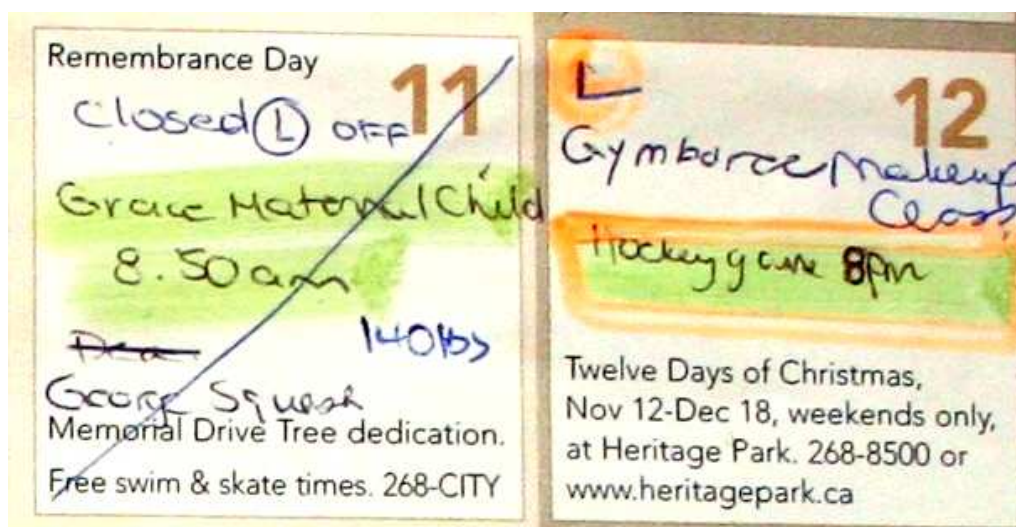 Remembrance Day
11
Closed L OFF
Grace Maternal Child
8.50am
140lbs
George Squash
Memorial Drive Tree dedication.
Free swim & skate times. 268-CITY
L
12
Gymboree Makeup
Class
Hockey game 8pm
Twelve Days of Christmas,
Nov 12-Dec 18, weekends only,
at Heritage Park. 268-8500 or
www.heritagepark.ca